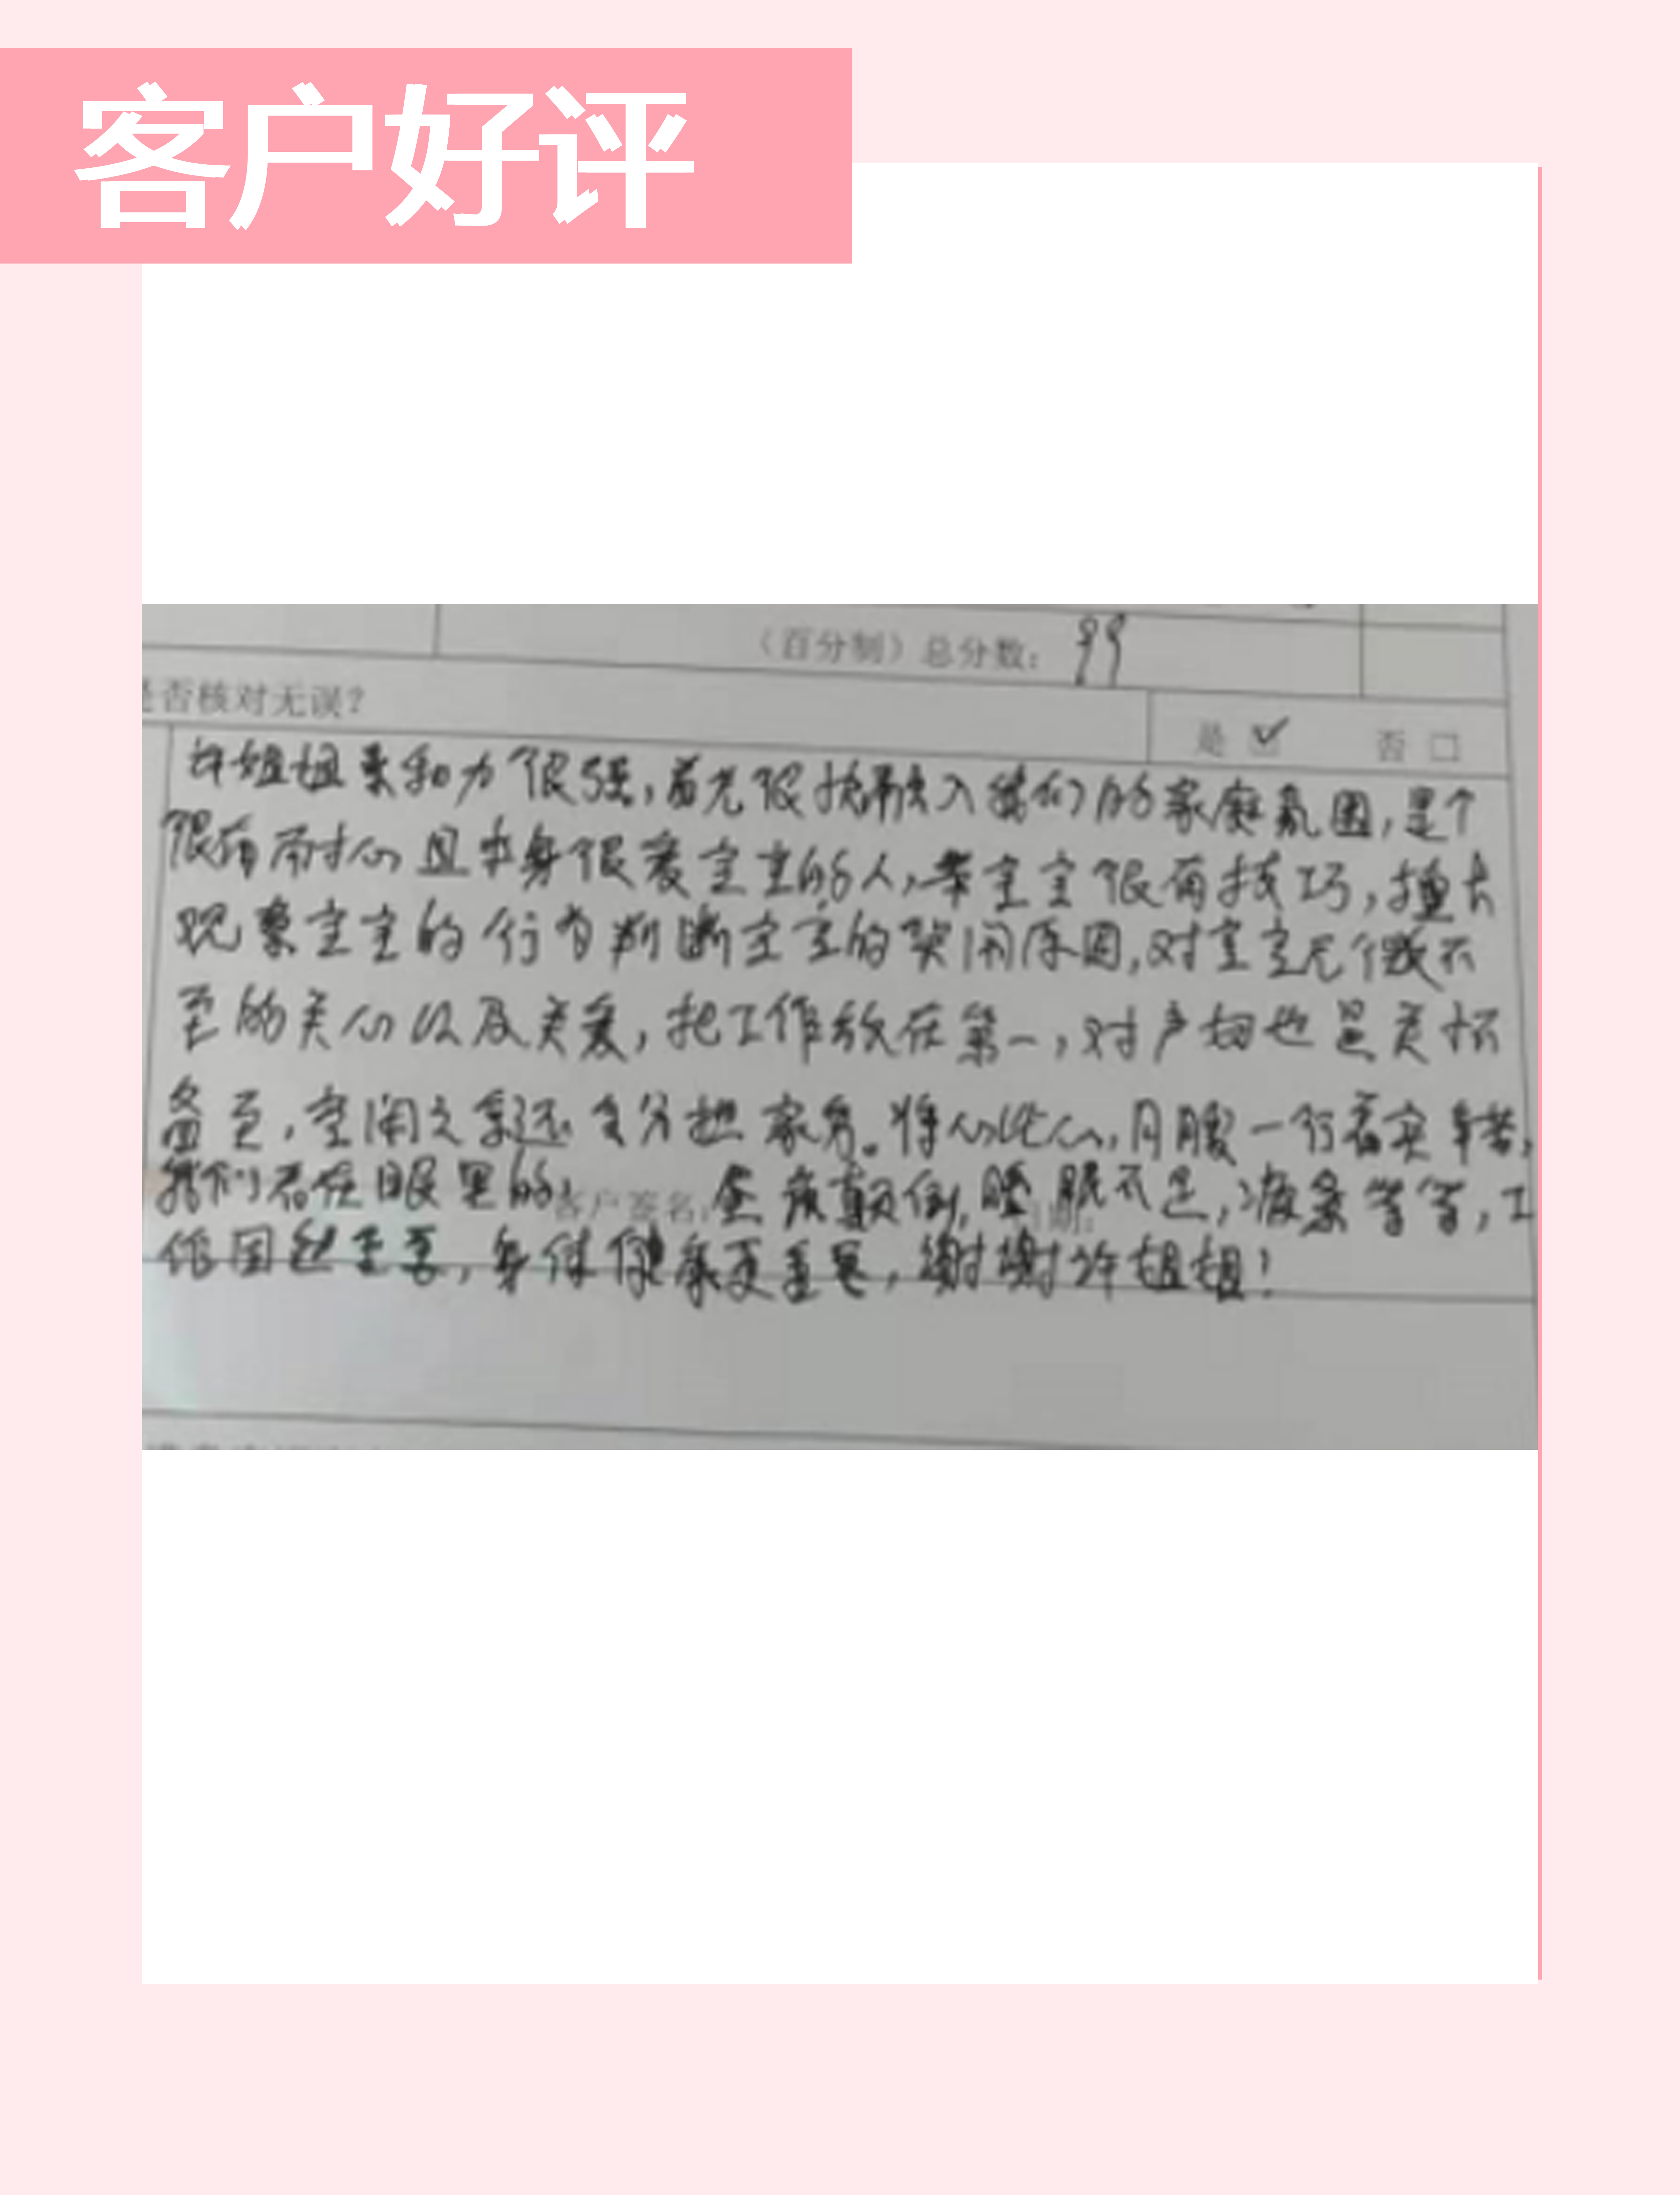 客户好评
（百分制）总分数：99
是否核对无误？
是 ☑ 否 □
许姐姐亲和力很强，首先很快融入我们的家庭氛围，是个
很有耐心且本身很爱宝宝的人，带宝宝很有技巧，擅长
观察宝宝的行为判断宝宝的哭闹原因，对宝宝无微不
至的关心以及关爱，把工作放在第一，对产妇也是关怀
备至，空闲之余还会分担家务。将心比心，月嫂一行着实辛苦，
我们看在眼里的，昼夜颠倒，睡眠不足，疲累等等，工
客户签名：
作固然重要，身体健康更重要，谢谢许姐姐！